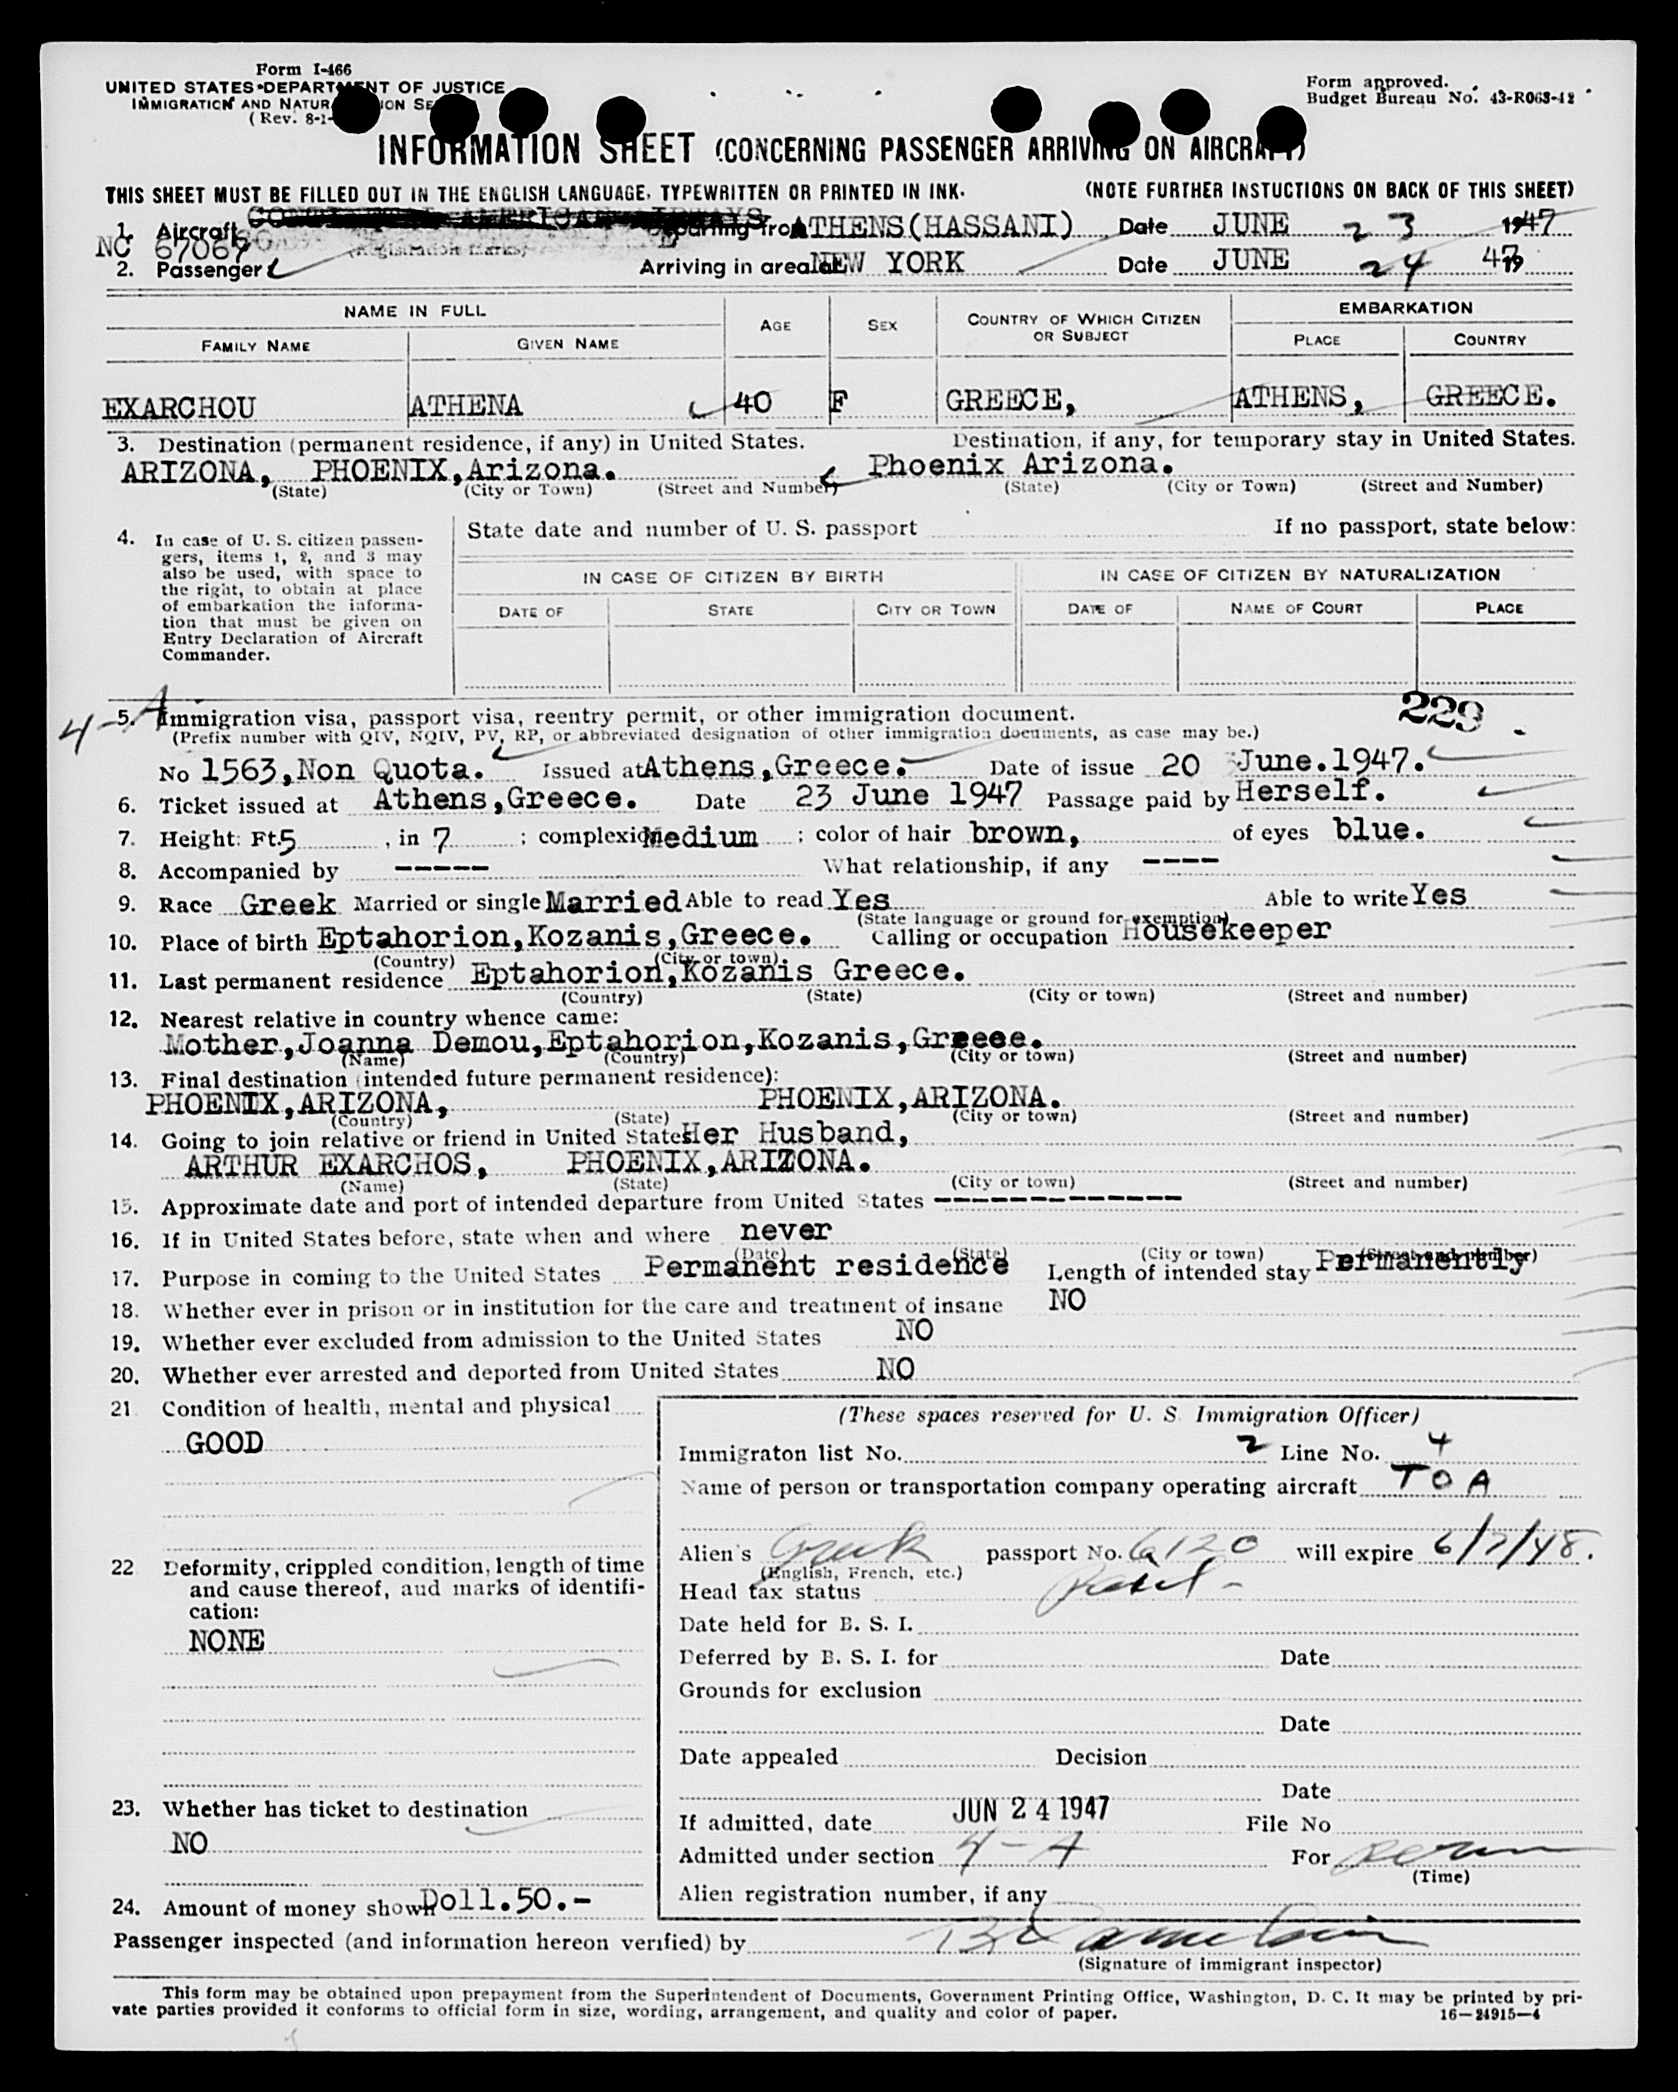 Form I-466
UNITED STATES DEPARTMENT OF JUSTICE
IMMIGRATION AND NATUR ION SE
(Rev. 8-1-
Form approved.
Budget Bureau No. 43-R063-42
INFORMATION SHEET (CONCERNING PASSENGER ARRIVING ON AIRCRAFT)
THIS SHEET MUST BE FILLED OUT IN THE ENGLISH LANGUAGE, TYPEWRITTEN OR PRINTED IN INK. (NOTE FURTHER INSTUCTIONS ON BACK OF THIS SHEET)
1. Aircraft NC 67067 (Registration marks) Departing from ATHENS(HASSANI) Date JUNE 23 1947
2. Passenger Arriving in area at NEW YORK Date JUNE 24 47
NAME IN FULL AGE SEX COUNTRY OF WHICH CITIZEN OR SUBJECT EMBARKATION
FAMILY NAME GIVEN NAME PLACE COUNTRY
EXARCHOU ATHENA 40 F GREECE, ATHENS, GREECE.
3. Destination (permanent residence, if any) in United States. Destination, if any, for temporary stay in United States.
ARIZONA, PHOENIX,Arizona. Phoenix Arizona.
(State) (City or Town) (Street and Number) (State) (City or Town) (Street and Number)
4. In case of U. S. citizen passen-
gers, items 1, 2, and 3 may
also be used, with space to
the right, to obtain at place
of embarkation the informa-
tion that must be given on
Entry Declaration of Aircraft
Commander.
State date and number of U. S. passport If no passport, state below:
IN CASE OF CITIZEN BY BIRTH IN CASE OF CITIZEN BY NATURALIZATION
DATE OF STATE CITY OR TOWN DATE OF NAME OF COURT PLACE
229
4-A
5. Immigration visa, passport visa, reentry permit, or other immigration document.
(Prefix number with QIV, NQIV, PV, RP, or abbreviated designation of other immigration documents, as case may be.)
No 1563,Non Quota. Issued at Athens,Greece. Date of issue 20 June.1947.
6. Ticket issued at Athens,Greece. Date 23 June 1947 Passage paid by Herself.
7. Height: Ft. 5, in 7; complexion Medium; color of hair brown, of eyes blue.
8. Accompanied by ----- What relationship, if any ----
9. Race Greek Married or single Married Able to read Yes Able to write Yes
(State language or ground for exemption)
10. Place of birth Eptahorion,Kozanis,Greece. Calling or occupation Housekeeper
(Country) (City or town)
11. Last permanent residence Eptahorion,Kozanis Greece.
(Country) (State) (City or town) (Street and number)
12. Nearest relative in country whence came:
Mother,Joanna Demou,Eptahorion,Kozanis,Greeee.
(Name) (Country) (City or town) (Street and number)
13. Final destination (intended future permanent residence):
PHOENIX,ARIZONA, PHOENIX,ARIZONA.
(Country) (State) (City or town) (Street and number)
14. Going to join relative or friend in United States Her Husband,
ARTHUR EXARCHOS, PHOENIX,ARIZONA.
(Name) (State) (City or town) (Street and number)
15. Approximate date and port of intended departure from United States -------------
16. If in United States before, state when and where never
(Date) (State) (City or town) (Street and number)
17. Purpose in coming to the United States Permanent residence Length of intended stay Permanently
18. Whether ever in prison or in institution for the care and treatment of insane NO
19. Whether ever excluded from admission to the United States NO
20. Whether ever arrested and deported from United States NO
21. Condition of health, mental and physical
GOOD
22 Deformity, crippled condition, length of time
and cause thereof, and marks of identifi-
cation:
NONE
23. Whether has ticket to destination
NO
24. Amount of money shown Doll.50.-
(These spaces reserved for U. S. Immigration Officer)
Immigraton list No. 2 Line No. 4
Name of person or transportation company operating aircraft T O A
Alien's Greek passport No. 6120 will expire 6/7/48.
(English, French, etc.)
Head tax status
Date held for B. S. I.
Deferred by B. S. I. for Date
Grounds for exclusion
Date
Date appealed Decision
Date
If admitted, date JUN 24 1947 File No
Admitted under section 4-A For
(Time)
Alien registration number, if any
Passenger inspected (and information hereon verified) by
(Signature of immigrant inspector)
This form may be obtained upon prepayment from the Superintendent of Documents, Government Printing Office, Washington, D. C. It may be printed by pri-
vate parties provided it conforms to official form in size, wording, arrangement, and quality and color of paper. 16—24915—4